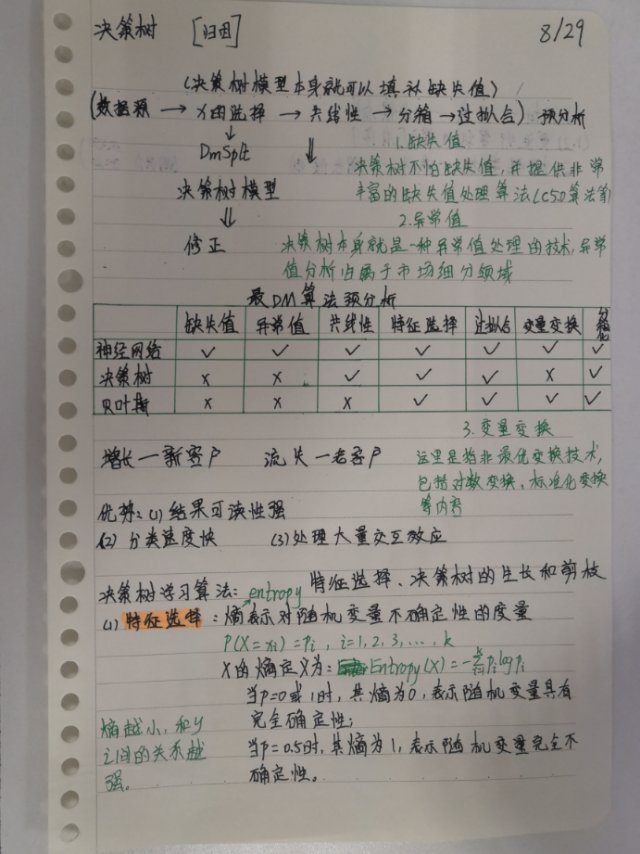 决策树 [归因] 8/29
(决策树模型本身就可以填补缺失值)
(数据源 → X的选择 → 共线性 → 分箱 → 过拟合) 预分析
↓ ⇓ 1.缺失值
DmSplit 决策树不怕缺失值,并提供非常
决策树模型 丰富的缺失值处理算法(C5.0算法等)
⇓ 2.异常值
修正 决策树本身就是一种异常值处理的技术,异常
值分析归属于市场细分领域
最DM算法预分析
缺失值 异常值 共线性 特征选择 过拟合 变量变换
神经网络 ✓ ✓ ✓ ✓ ✓ ✓ ✓
决策树 x x ✓ ✓ ✓ x ✓
贝叶斯 x x x ✓ ✓ ✓ ✓
3.变量变换
增长—新客户 流失—老客户 这里是指非最优变换技术,
包括对数变换、标准化变换
等内容
优势:(1)结果可读性强
(2) 分类速度快 (3)处理大量交互效应
决策树学习算法: entropy 特征选择、决策树的生长和剪枝
(1) 特征选择:熵表示对随机变量不确定性的度量
P(X=xi)=pi, i=1,2,3,...,k
X的熵定义为: Entropy(X)=-∑pilogpi
当p=0或1时,其熵为0,表示随机变量具有
完全确定性;
熵越小,和y
之间的关系越
强。
当p=0.5时,其熵为1,表示随机变量完全不
确定性。